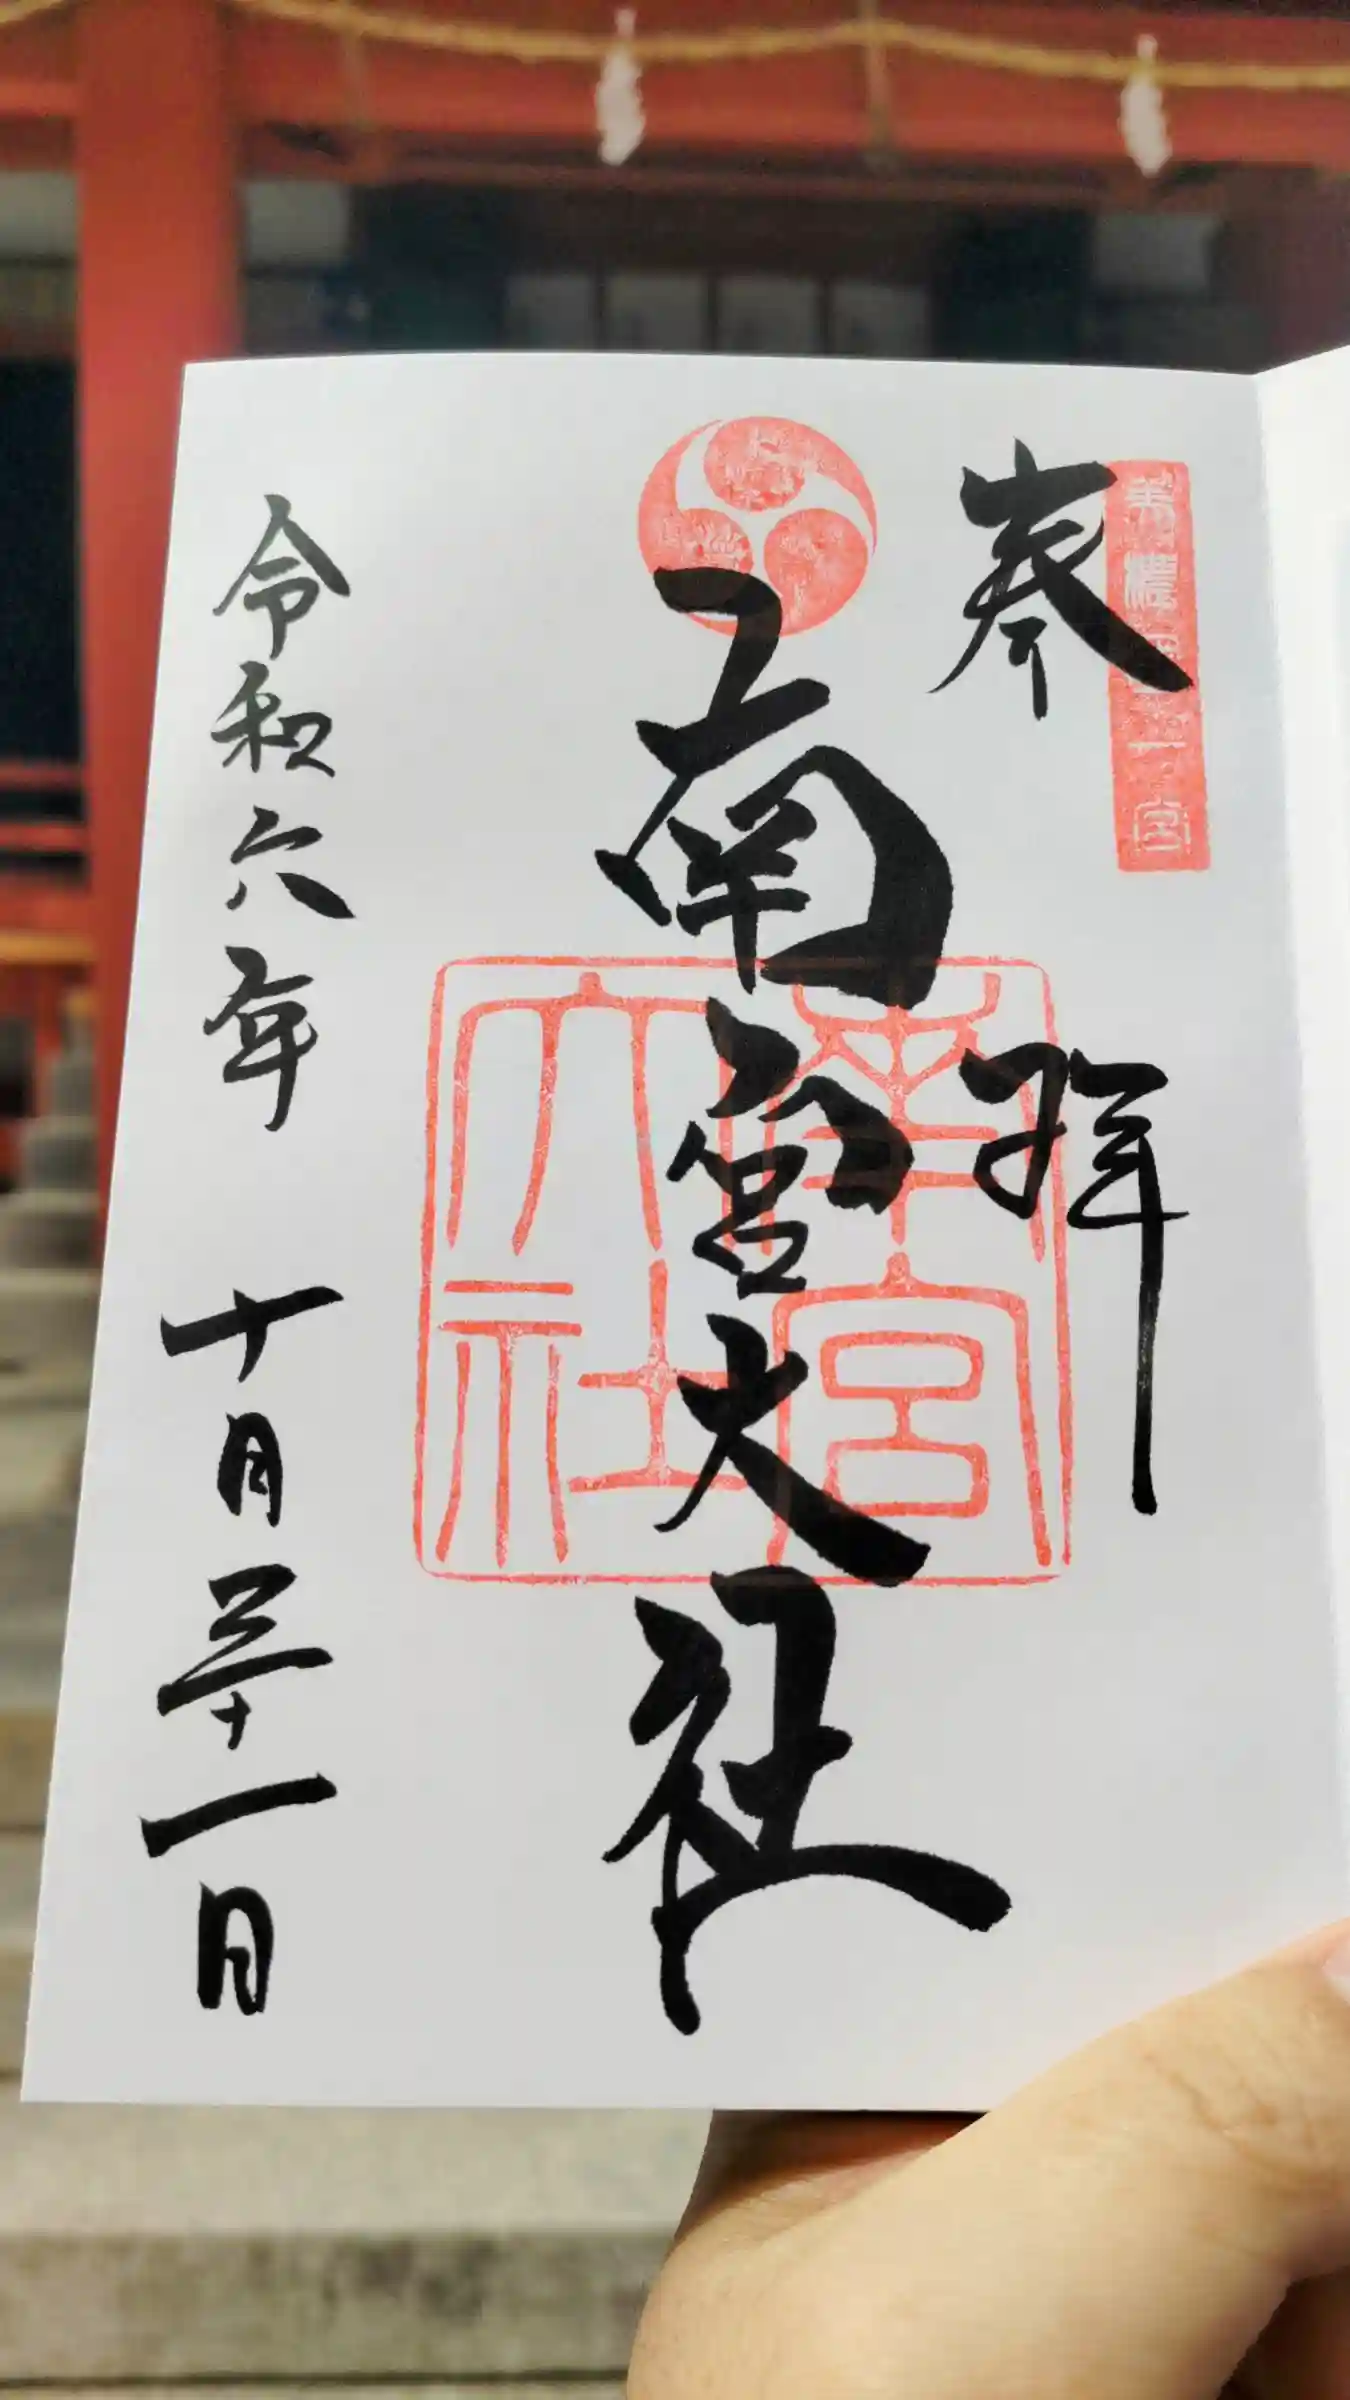 美濃国一宮
奉拝
南宮大社
南宮大社
令和六年 十月三十一日